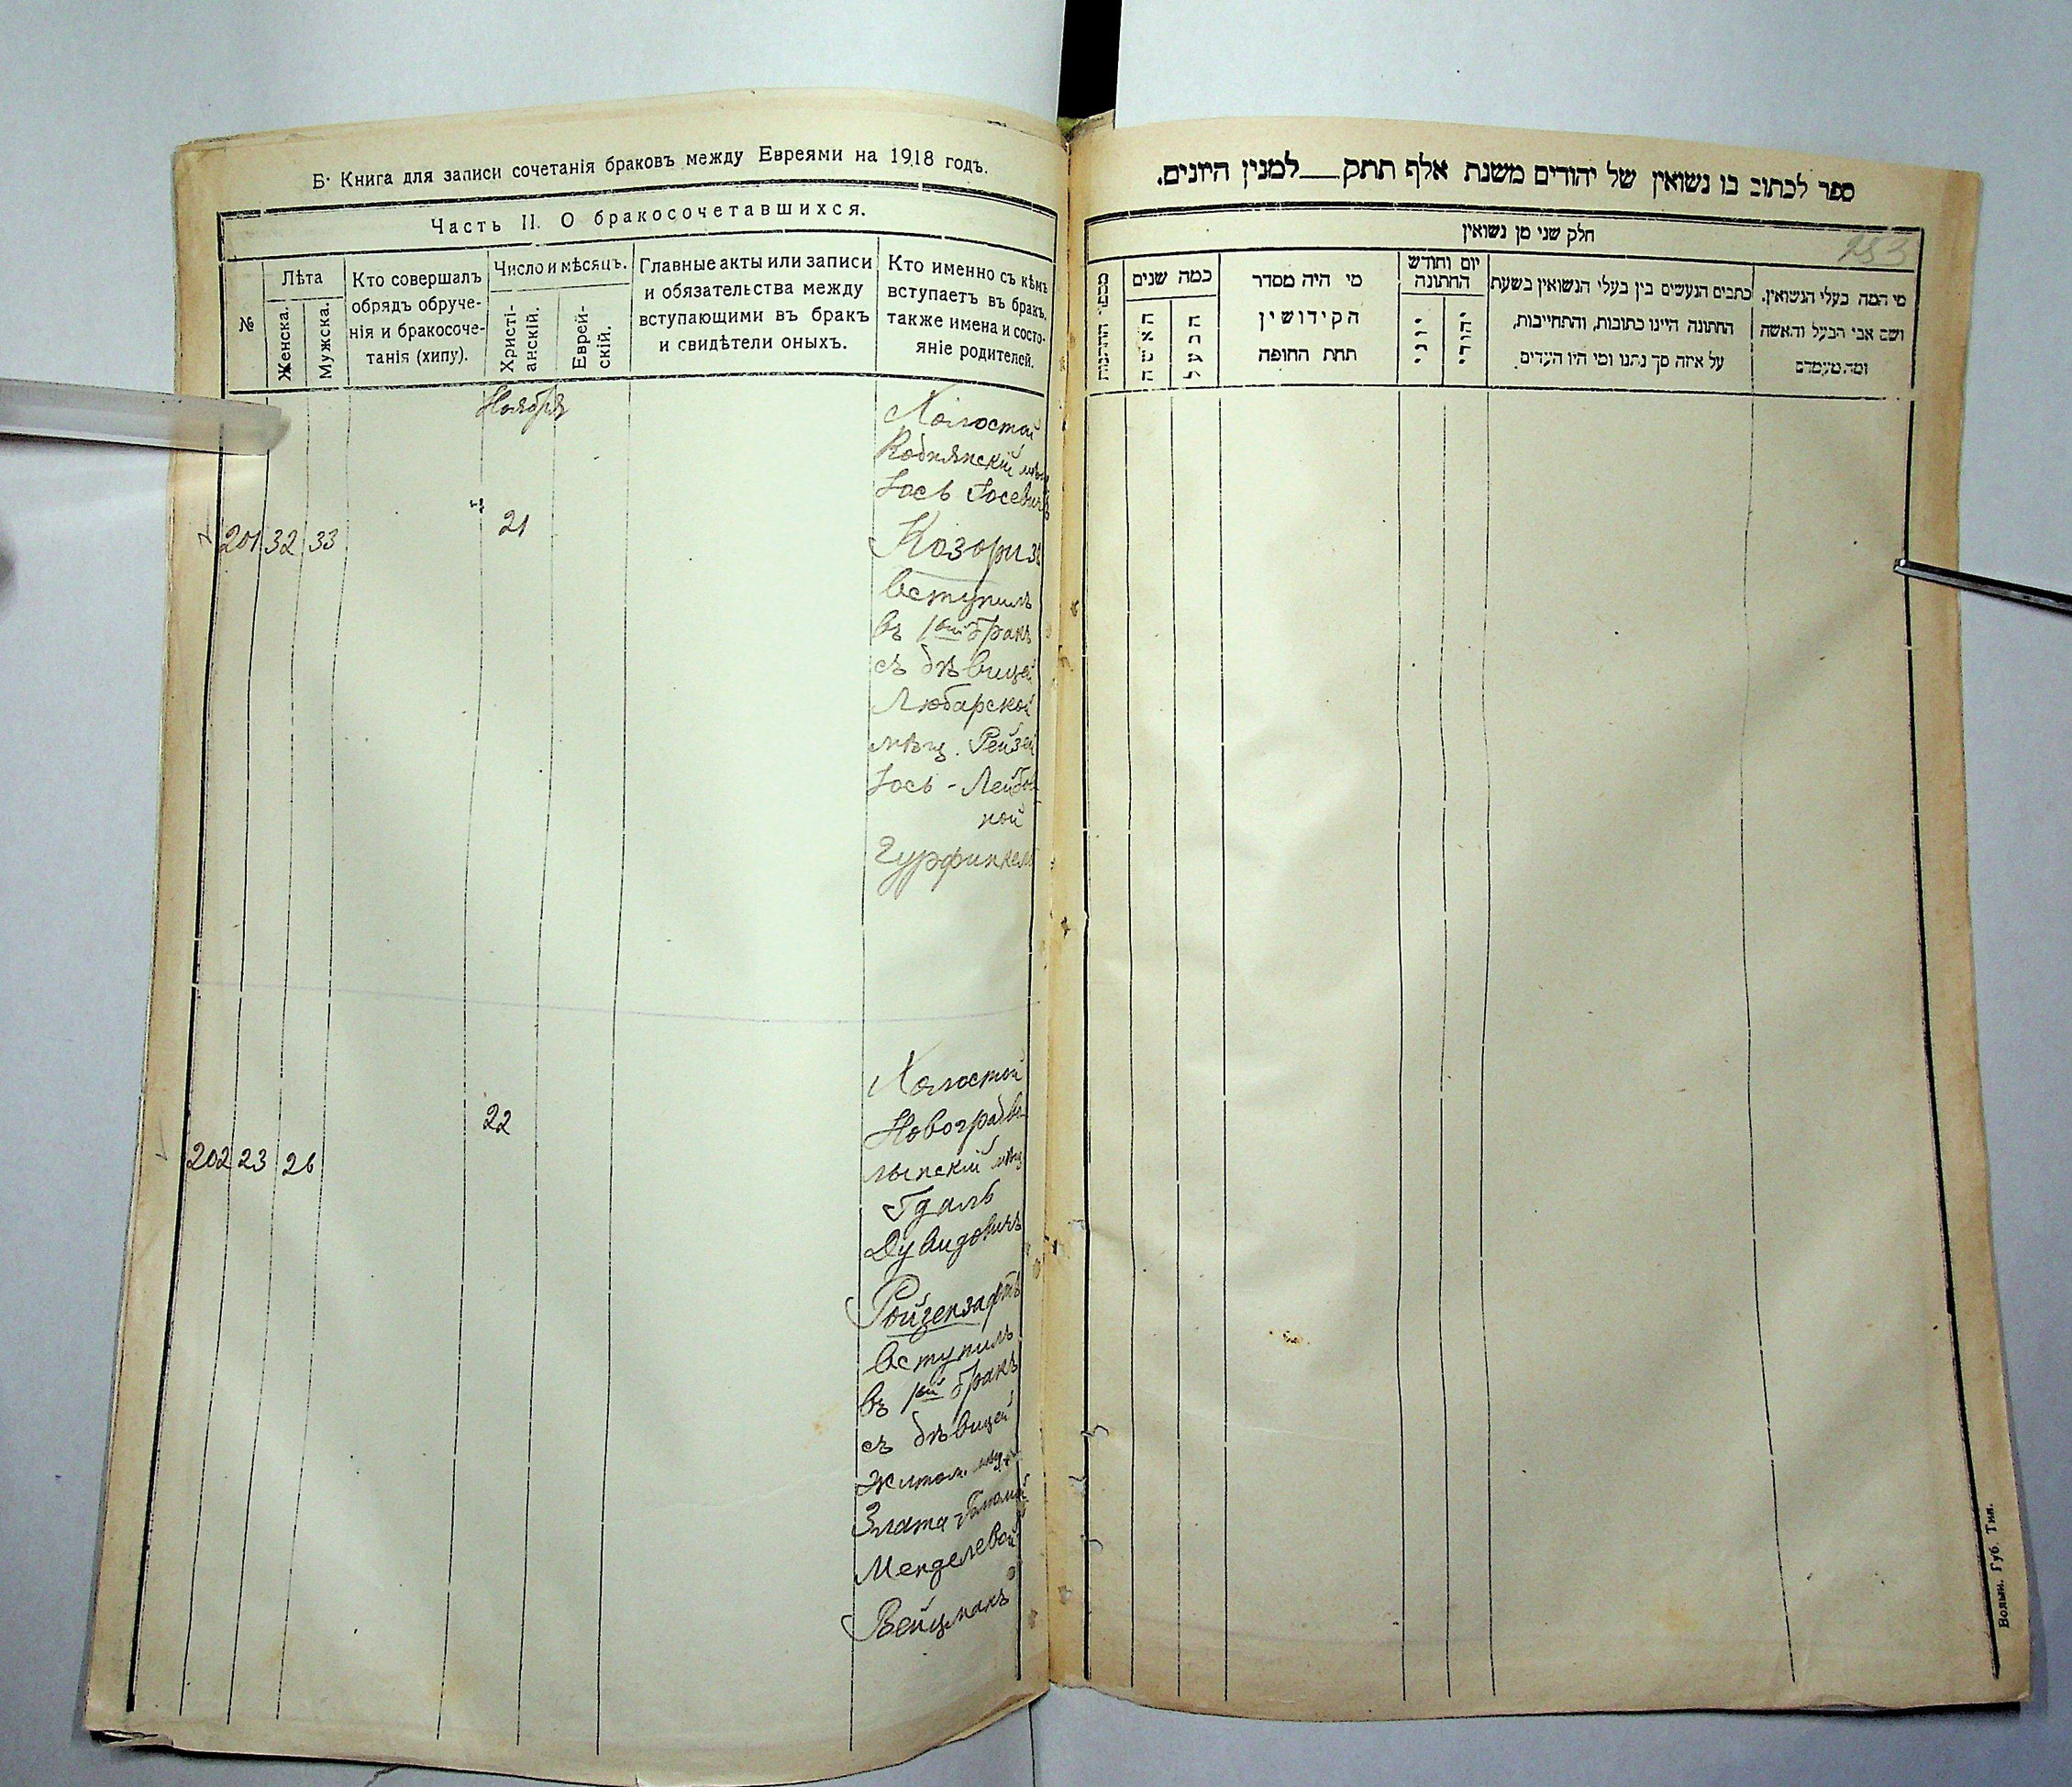 Б. Книга для записи сочетанія браковъ между Евреями на 1918 годъ.
Часть II. О бракосочетавшихся.
№
Лѣта
Женска.
Мужска.
Кто совершалъ
обрядъ обруче-
нія и бракосоче-
танія (хипу).
Число и мѣсяцъ.
Христі-
анскій.
Еврей-
скій.
Главные акты или записи
и обязательства между
вступающими въ бракъ
и свидѣтели оныхъ.
Кто именно съ кѣмъ
вступаетъ въ бракъ,
также имена и состо-
яніе родителей.
Ноября
201 32 33
21
Холостой
Роднянскій мѣщ
Іось Іосевичъ
Козоризъ
вступилъ
въ 1ый бракъ
съ дѣвицей
Любарской
мѣщ. Рейзей
Іось-Лейбов
ной
Гурфинкель
202 23 26
22
Холостой
Новоградво
лынскій мѣщ
Гдаль
Дувидовичъ
Ройзензафтъ
вступилъ
въ 1ый бракъ
съ дѣвицей
Житом. мѣщ.
Злата
Менделевой
Вейцманъ
ספר לכתוב בו נשואין של יהודים משנת אלף תתק___למנין היונים.
253
חלק שני מן נשואין
כמה שנים
האשה
הבעל
מי היה מסדר
הקידושין
תחת החופה
יום וחודש
החתונה
יוני
יהודי
כתבים הנעשים בין בעלי הנשואין בשעת
החתונה היינו כתובות, והתחייבות,
על איזה סך נתנו ומי היו העדים
מי המה בעלי הנשואין.
ושם אבי הבעל והאשה
ומה מעמדם
Волын. Губ. Тип.